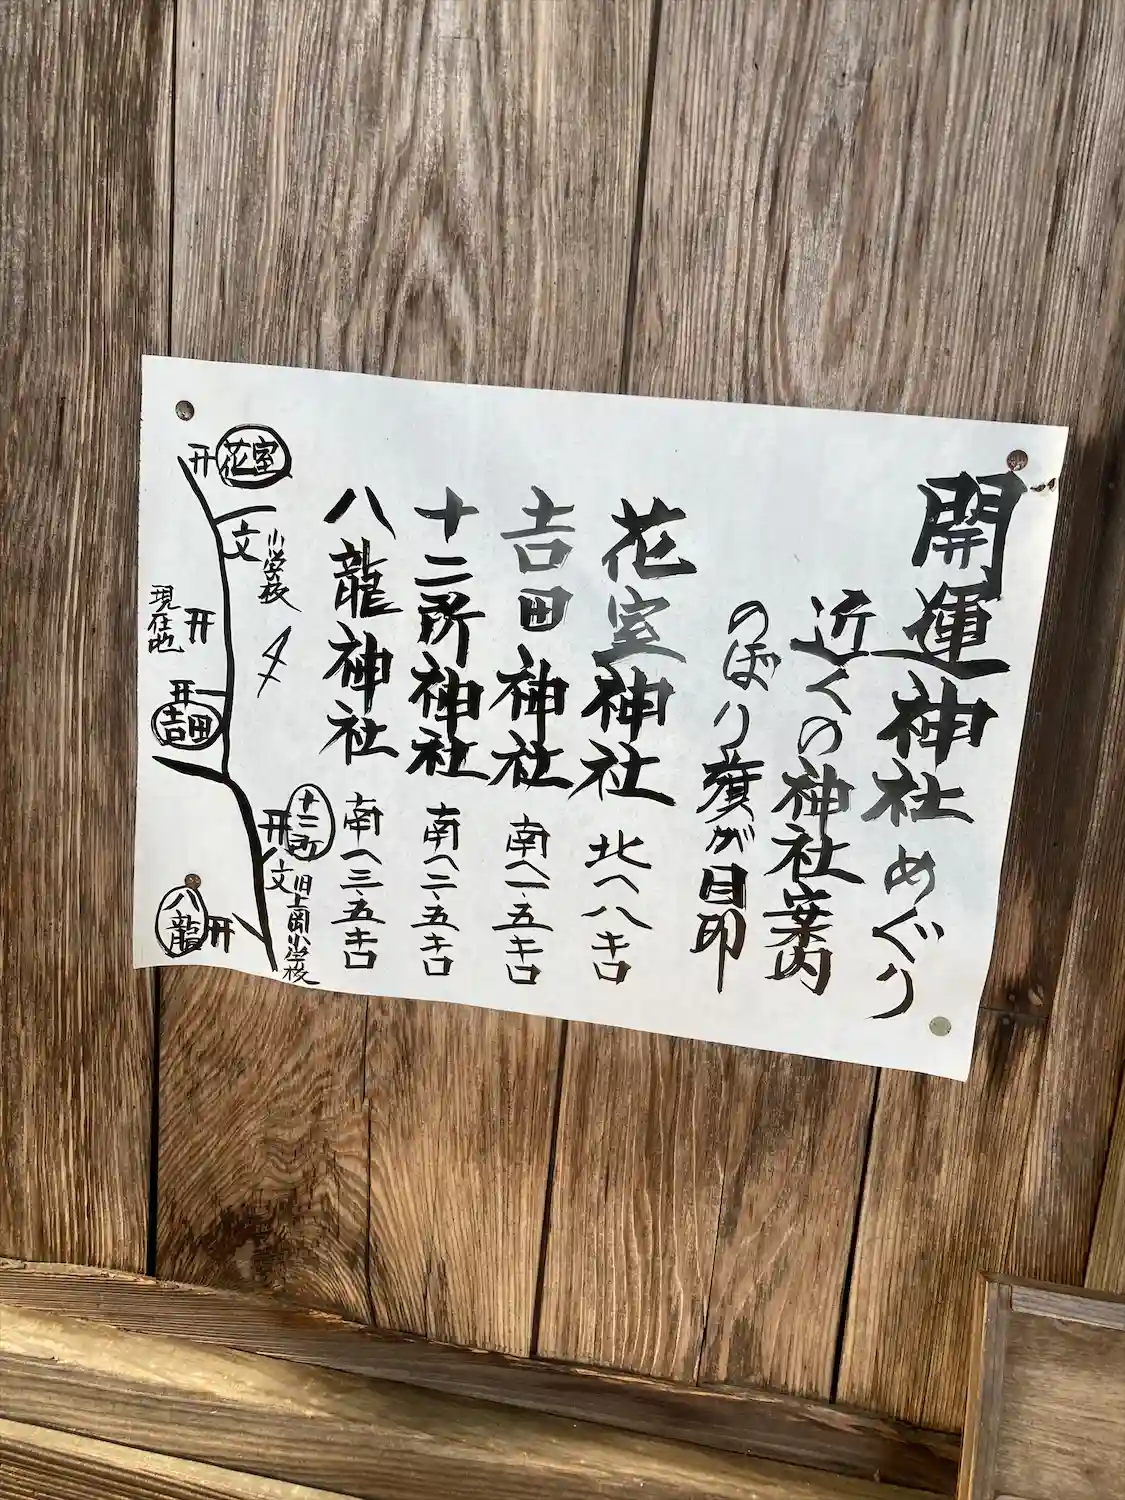 開運神社めぐり
近くの神社案内
のぼり旗が目印
花室神社 北へ八キロ
吉田神社 南へ一.五キロ
十二所神社 南へ二.五キロ
八龍神社 南へ三.五キロ
花室
文
小学校
現在地
吉田
十二所
文
旧上岡小学校
八龍